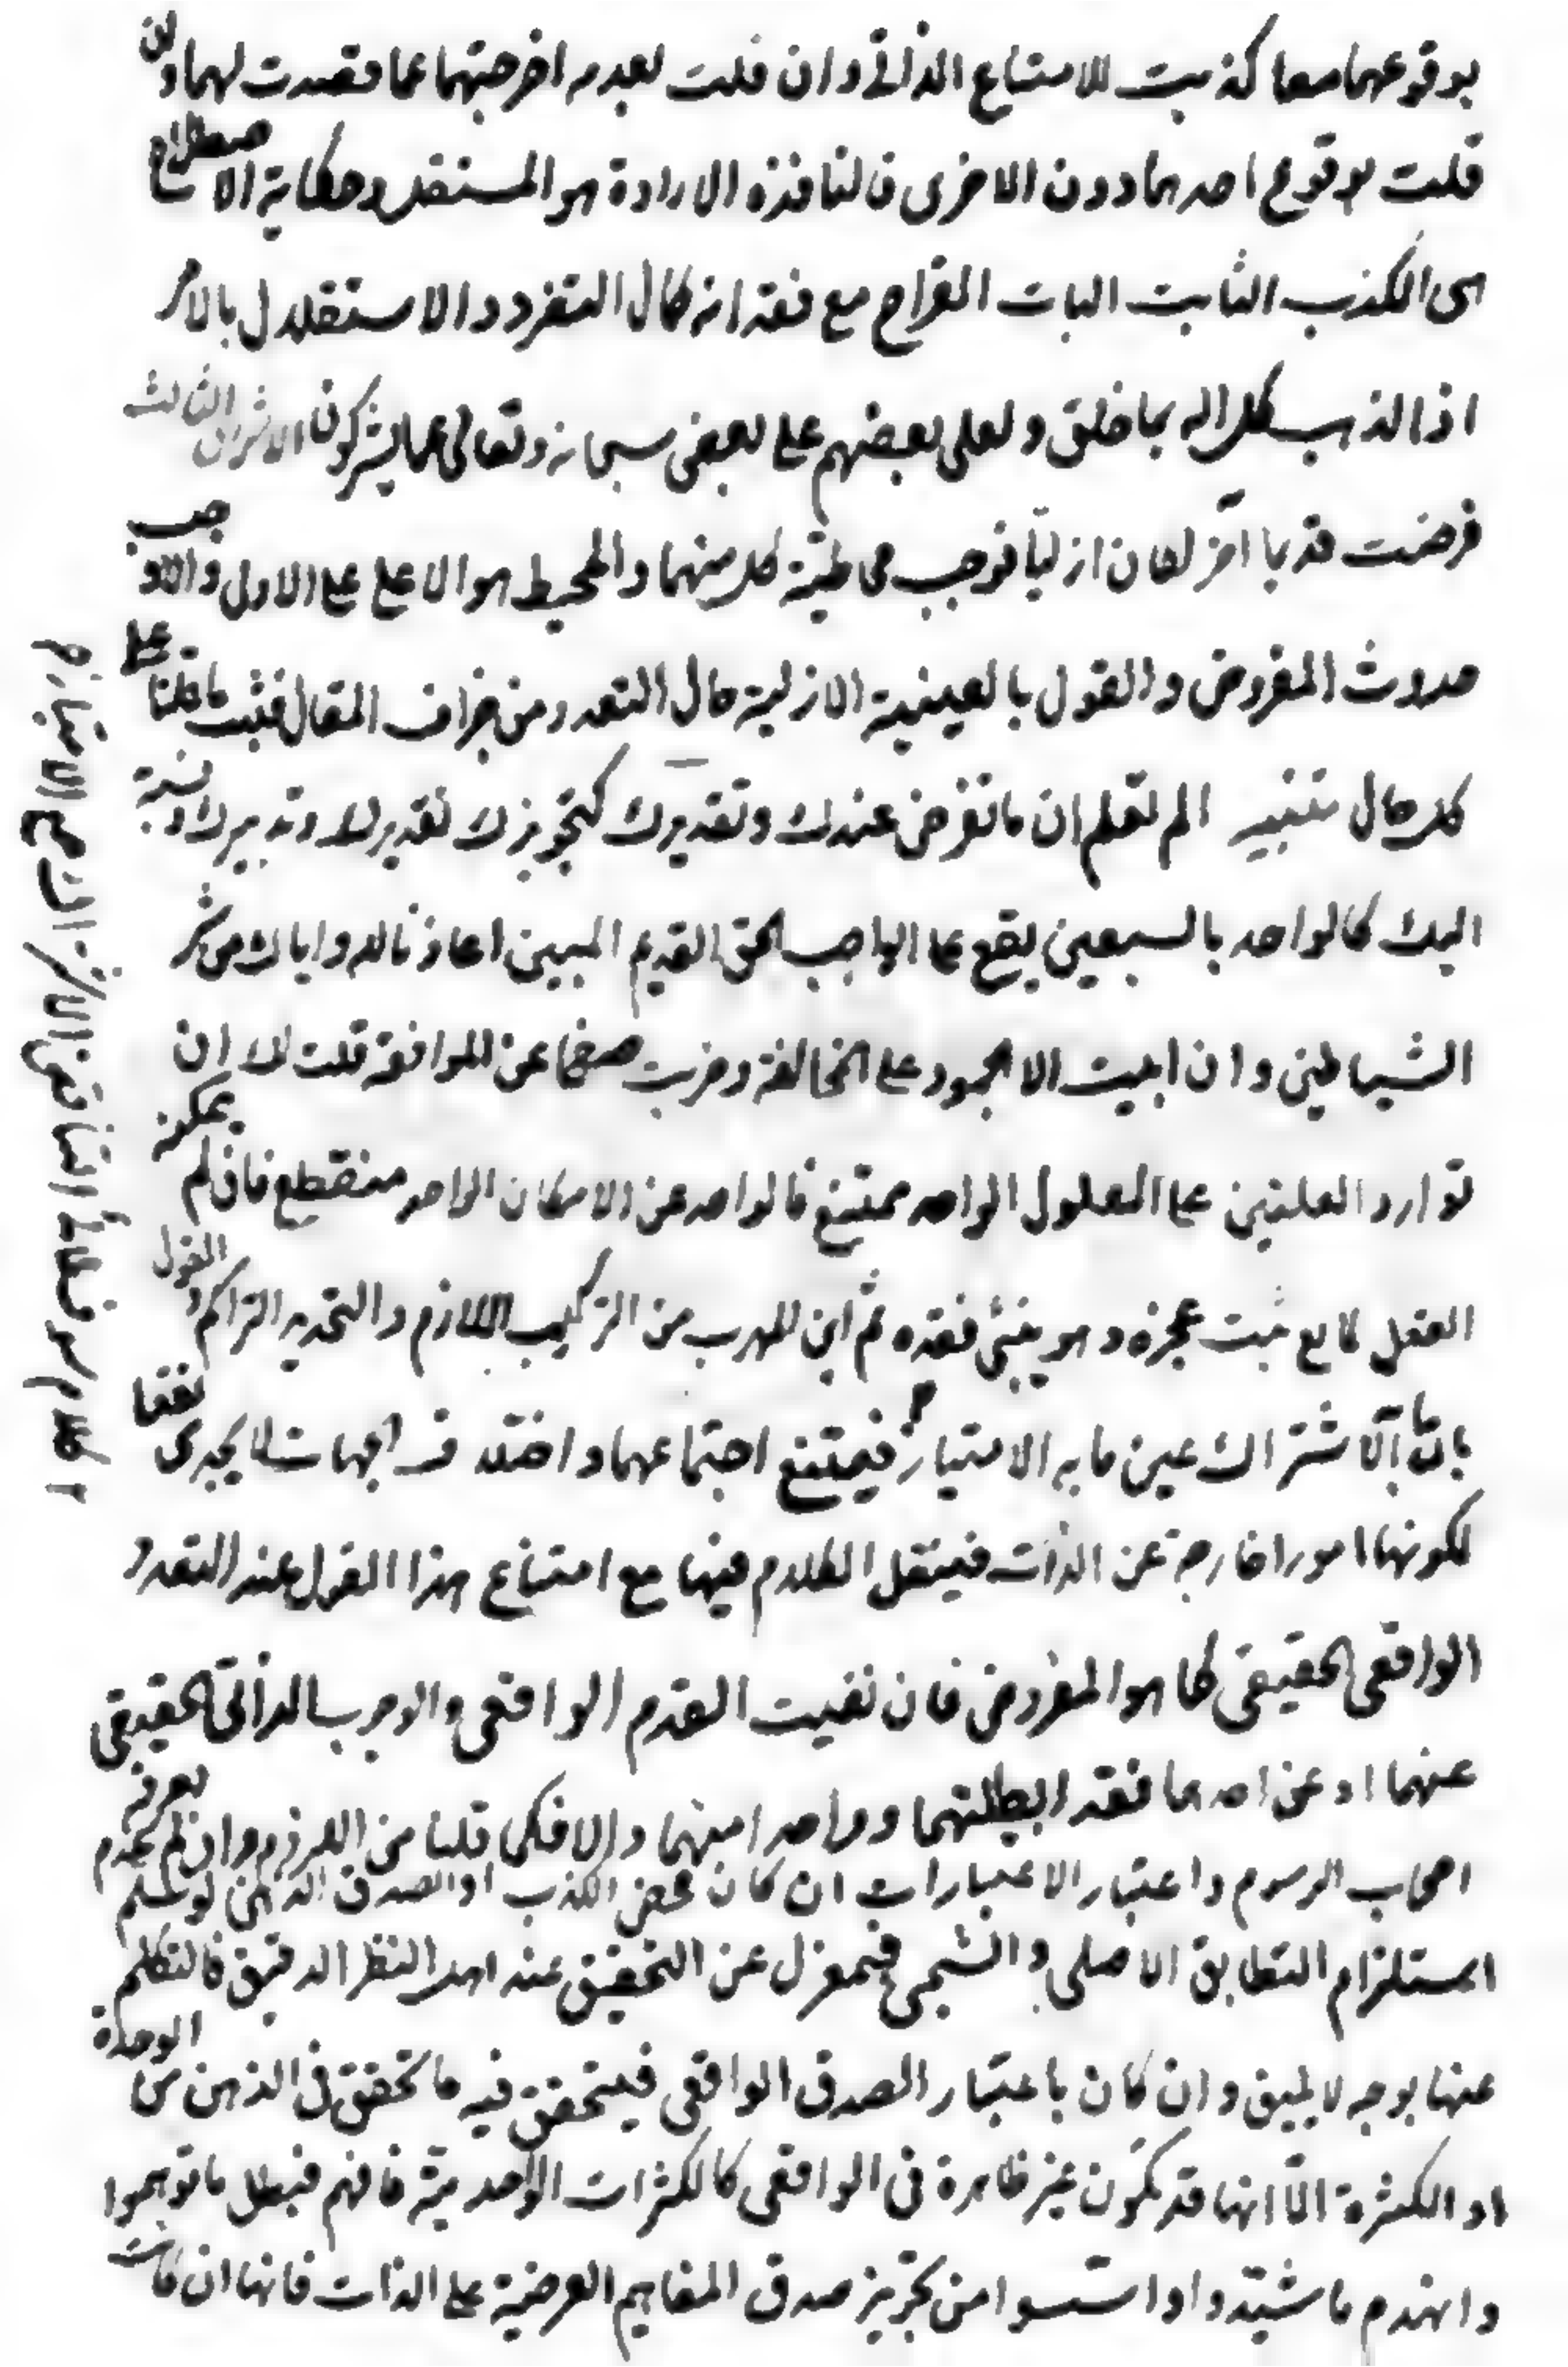 بوقوعهما معا كذبت للامتناع الذاتي وان قلت بعدمه اخرجتهما عما قصدت لهما وان
قلت بوقوع احدهما دون الاخرى فالنافذة الارادة هو المستقل وحكاية الاصطلاح
هى الكذب الثابت البات القراح مع فقدانه كمال التفرد والاستقلال بالامر
اذا لذهب كل اله بما خلق ولعلى بعضهم على بعض سبحانه وتعالى عما يشركون الاشراق الثالث
فرضت قديما آخر لكان ازليّا فوجب محاطيّة كل منهما والمحيط هو الاعلى على الاول والاوجب
حدوث المفروض والقول بالعينية الازلية حال التعدد من جزاف المقال فثبت ما قلنا على
كل حال تنبيه الم تعلم ان ما تفرض عندك وتقديرك كتجويزك تقديرك وتدبيرك ونسبة
اليك كالواحد بالسبعين يقع على الواجب الحق القديم المبين اعاذنا الله واياك من شر
الشياطين وان ابيت الا الجمود على المخالفة وضربت صفحا عن الموافقة قلت لك ان
توارد العلتين على المعلول الواحد ممتنع فالواحد عن الامكان الواحد منقطع فان لم يمكنه
الفعل كما مع ثبت عجزه وهو ينبئ فقده ثم اين المهرب من التركيب اللازم والتحديد المتراكم والقول
بان ما الاشتراك عين ما به الامتياز فيمتنع اجتماعهما واختلاف الجهات لا يجدى نفعا
لكونها امورا خارجة عن الذات فينتقل الكلام فيها مع امتناع هذا القول عند التعدد
الواقعى الحقيقى كما هو المفروض فان نفيت القدم الواقعى والوجوب الذاتى الحقيقى
عنهما او عن احدهما فقد ابطلتهما وواحدا منهما والا فكما قلنا من اللزوم وان لم يعرفه
اصحاب الرسوم واعتبار الاعتبارات ان كان محض الكذب او الصدق الذهنى لو سلم عدم
استلزام التطابق الاصلى والشبحى فبمعزل عن التحقيق عند اهل النظر الدقيق فالتكلم
عنها بوجه لا يليق وان كان باعتبار الصدق الواقعى فيتحقق فيه ما تحقق فى الذهن من الوحدة
او الكثرة الّا انها قد يكون غير ظاهرة فى الواقعى كالكثرات الواحديّة فافهم فبطل ما توهموا
وانهدم ما شيّدوا واسّسوا من تجويز صدق المفاهيم العرضية على الذات فانها ان كانت